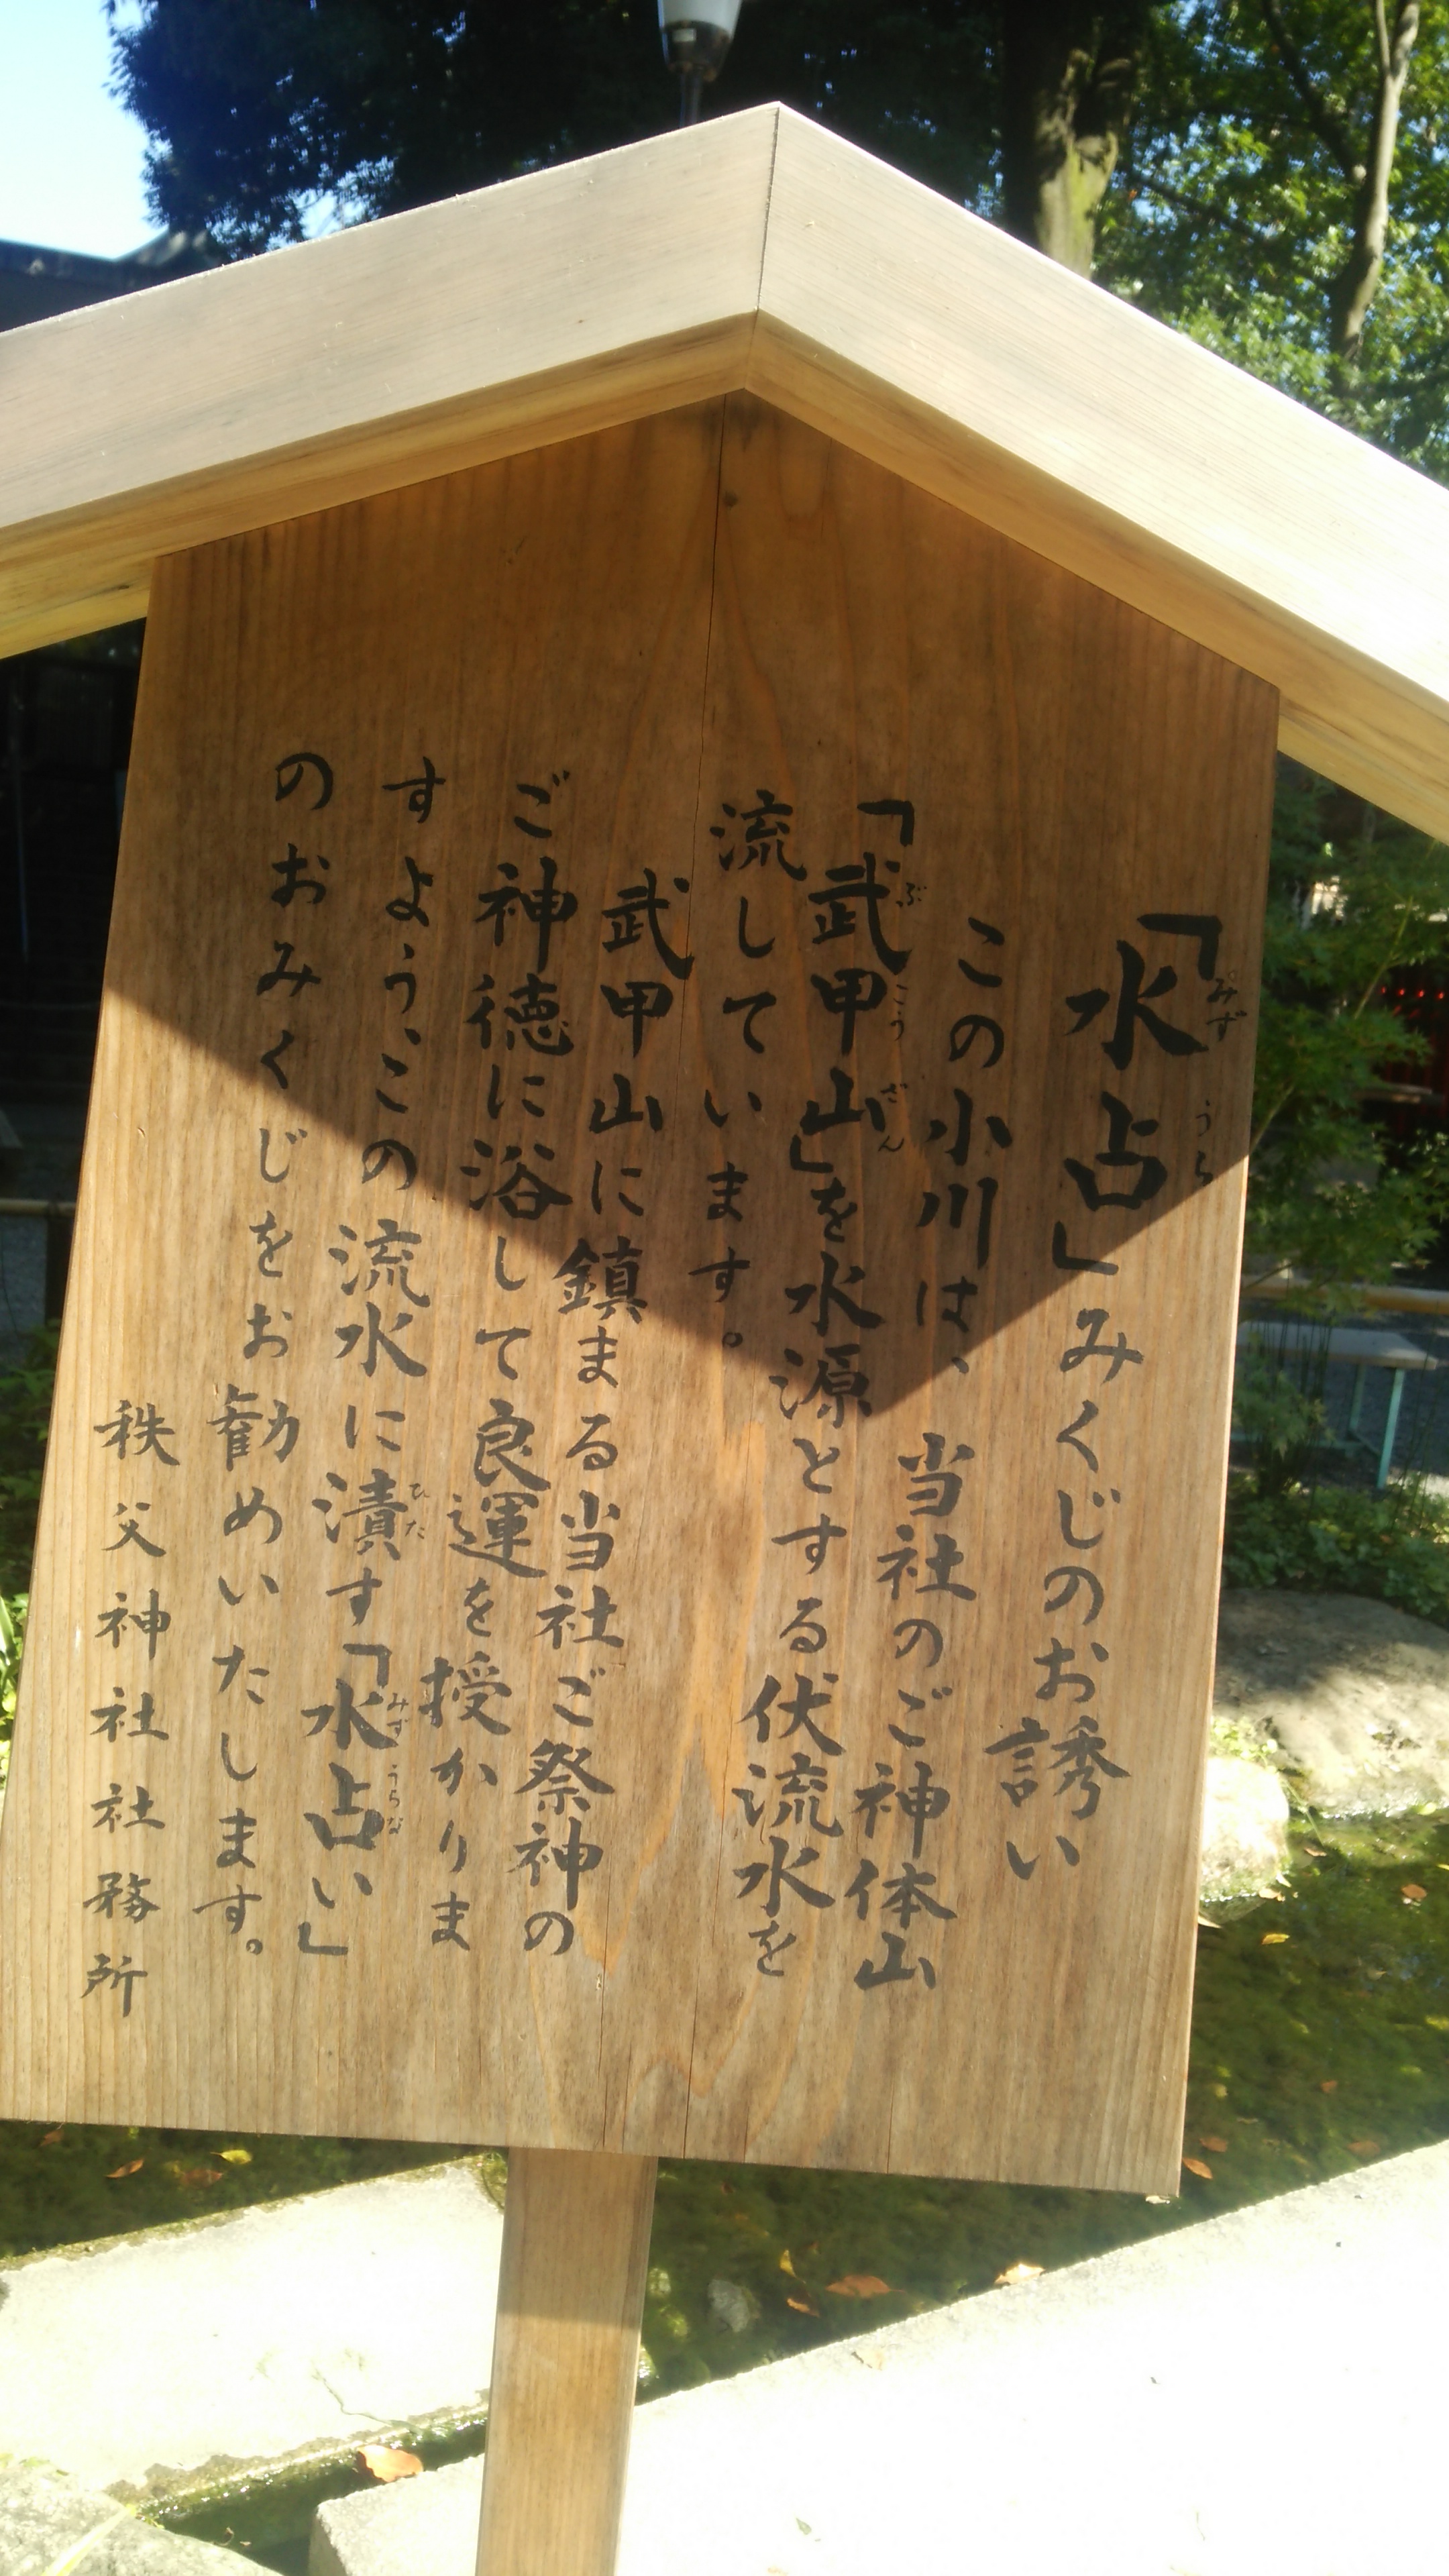 「水占」みくじのお誘い
この小川は、当社のご神体山
「武甲山」を水源とする伏流水を
流しています。
武甲山に鎮まる当社ご祭神の
ご神徳に浴して良運を授かりま
すよう、この流水に漬す「水占い」
のおみくじをお勧めいたします。
秩父神社社務所